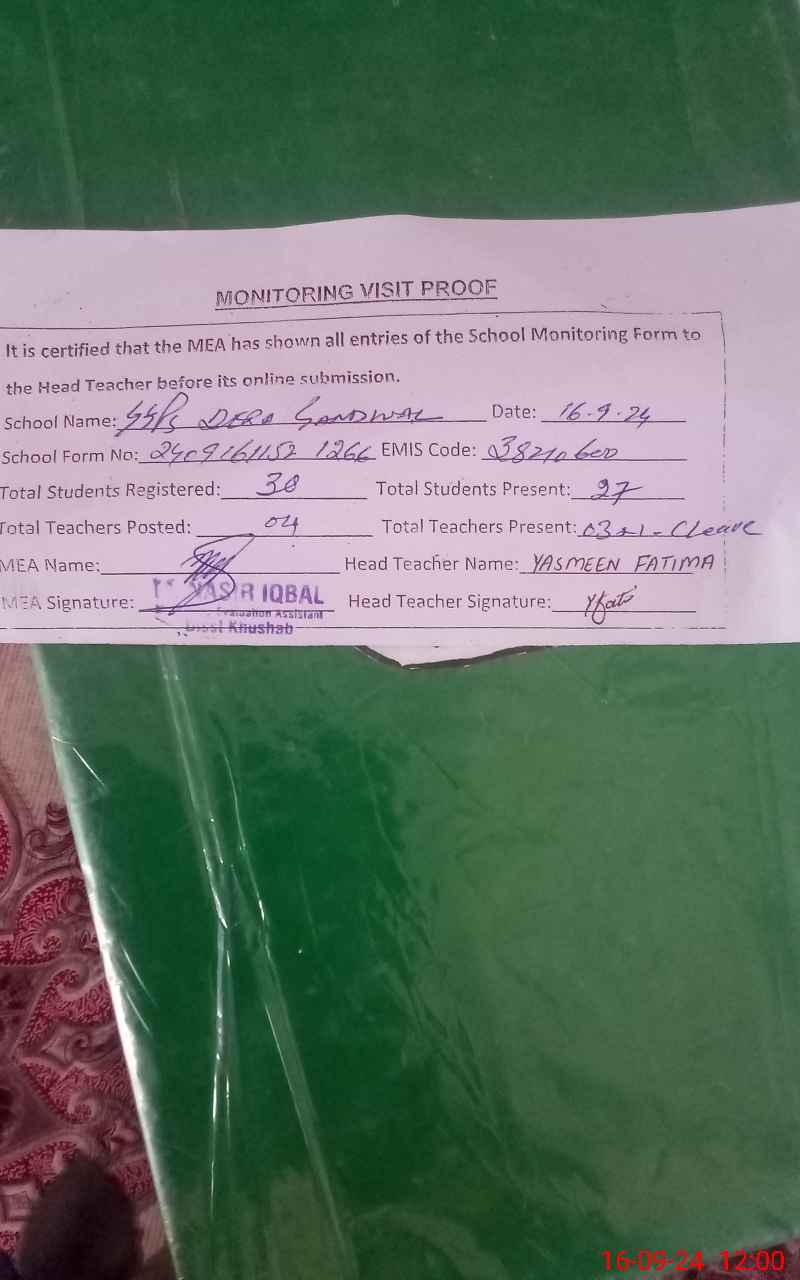 MONITORING VISIT PROOF
It is certified that the MEA has shown all entries of the School Monitoring Form to
the Head Teacher before its online submission.
School Name: GGPS DERA SANDWAL Date: 16-9-24
School Form No: 2409161152 1266 EMIS Code: 38210600
Total Students Registered: 30 Total Students Present: 27
Total Teachers Posted: 04 Total Teachers Present: 03+1-Cleave
MEA Name: Head Teacher Name: YASMEEN FATIMA
MEA Signature: YASIR IQBAL Head Teacher Signature: Yfati
Evaluation Assistant
Disst Khushab
16-09-24 12:00